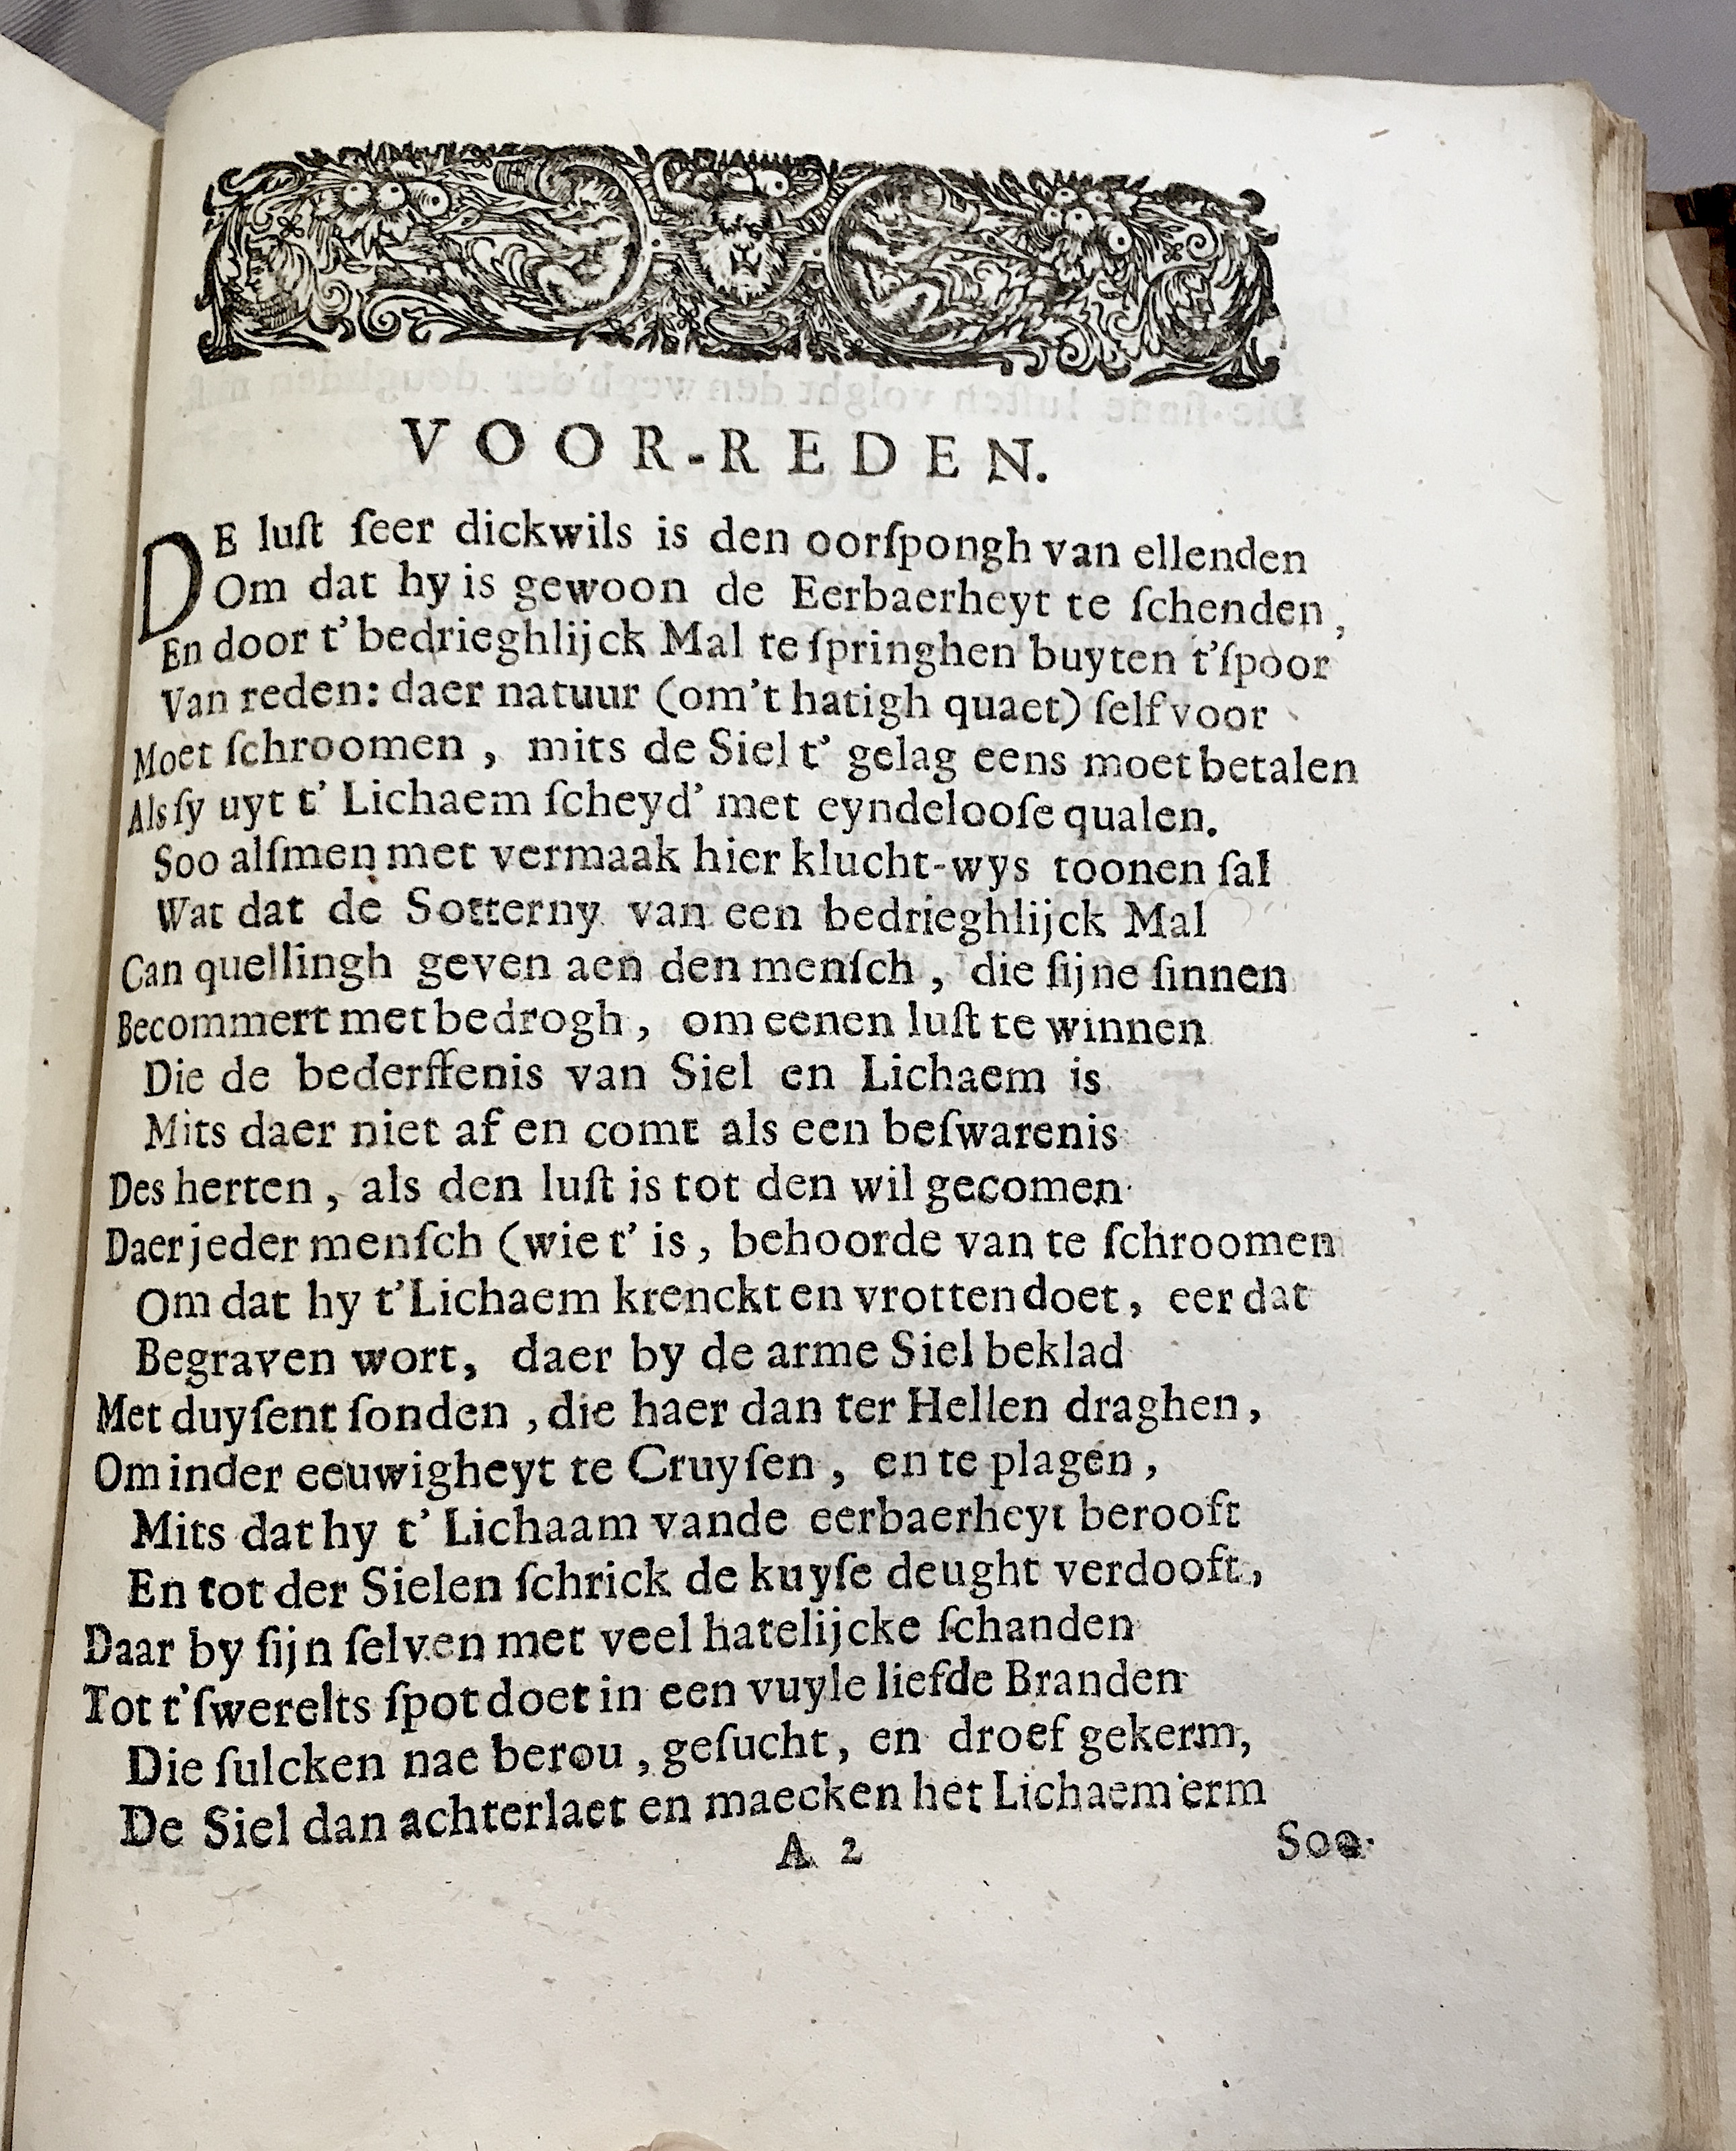 VOOR-REDEN.
DE luſt ſeer dickwils is den oorſpongh van ellenden
Om dat hy is gewoon de Eerbaerheyt te ſchenden,
En door t' bedrieghlijck Mal te ſpringhen buyten t'ſpoor
Van reden: daer natuur (om't hatigh quaet) ſelf voor
Moet ſchroomen, mits de Siel t' gelag eens moet betalen
Als ſy uyt t' Lichaem ſcheyd' met eyndelooſe qualen.
Soo alſmen met vermaak hier klucht-wys toonen ſal
Wat dat de Sotterny van een bedrieghlijck Mal
Can quellingh geven aen den menſch, die ſijne ſinnen
Becommert met bedrogh, om eenen luſt te winnen
Die de bederffenis van Siel en Lichaem is
Mits daer niet af en comt als een beſwarenis
Des herten, als den luſt is tot den wil gecomen
Daer jeder menſch (wie t' is, behoorde van te ſchroomen
Om dat hy t'Lichaem krenckt en vrotten doet, eer dat
Begraven wort, daer by de arme Siel beklad
Met duyſent ſonden, die haer dan ter Hellen draghen,
Om inder eeuwigheyt te Cruyſen, en te plagen,
Mits dat hy t' Lichaam vande eerbaerheyt berooft
En tot der Sielen ſchrick de kuyſe deught verdooft,
Daar by ſijn ſelven met veel hatelijcke ſchanden
Tot t'ſwerelts ſpot doet in een vuyle liefde Branden
Die ſulcken nae berou, geſucht, en droef gekerm,
De Siel dan achterlaet en maecken het Lichaem erm
A 2
Soo